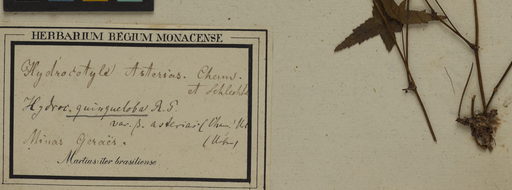 HERBARIUM REGIUM MONACENSE
Hydrocotyle Asterias. Cham.
et Schlechtd
Hydroc. quinqueloba R. P.
var. β. asterias (Cham.
Minas Geraës. (Urb.)
Martius: iter brasiliense